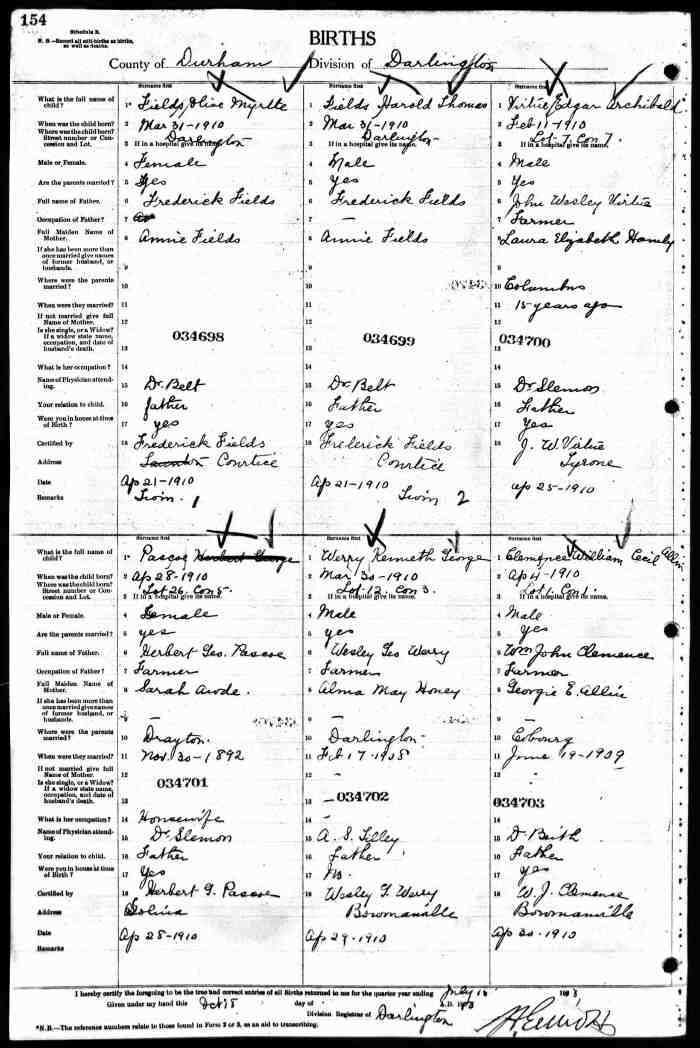 154
Schedule B.
N. B.—Record all still-births as births, as well as deaths.
BIRTHS
County of Durham Division of Darlington
Surname first Surname first Surname first
What is the full name of child? 1* Fields, Olive Myrtle 1 Fields Harold Thomas 1 Virtue, Edgar Archibald
When was the child born? 2 Mar 31-1910 2 Mar 31-1910 2 Feb 11-1910
Where was the child born? Street number or Concession and Lot. 3 If in a hospital give its name. Darlington 3 If in a hospital give its name. Darlington 3 If in a hospital give its name. Lot 7, Con 7.
Male or Female. 4 Female 4 Male 4 Male
Are the parents married? 5 Yes 5 yes 5 Yes
Full name of Father. 6 Frederick Fields 6 Frederick Fields 6 John Wesley Virtue
Occupation of Father? 7 7 — 7 Farmer
Full Maiden Name of Mother. 8 Annie Fields 8 Annie Fields 8 Laura Elizabeth
If she has been more than once married give names of former husband, or husbands. 9 9 9
Where were the parents married? 10 10 10 Columbus
When were they married? 11 11 11 15 years ago
If not married give full Name of Mother. 12 12 12
Is she single, or a Widow? If a widow state name, occupation, and date of husband's death. 13 034698 13 034699 13 034700
What is her occupation? 14 14 14
Name of Physician attending. 15 Dr. Belt 15 Dr. Belt 15 Dr Slemon
Your relation to child. 16 father 16 Father 16 Father
Were you in house at time of Birth? 17 yes 17 yes 17 Yes
Certified by 18 Frederick Fields 18 Frederick Fields 18 J. W. Virtue
Address Courtice Courtice Tyrone
Date Ap 21-1910 Ap 21-1910 Ap 25-1910
Remarks Twin. 1 Twin 2
Surname first Surname first Surname first
What is the full name of child? 1* Pascoe Herbert George 1 Werry Kenneth George 1 Clemence William Cecil Allin
When was the child born? 2 Ap 28-1910 2 Mar 30-1910 2 Ap 4-1910
Where was the child born? Street number or Concession and Lot. 3 If in a hospital give its name. Lot 26. Con 5. 3 If in a hospital give its name. Lot 12. Con 3. 3 If in a hospital give its name.
Male or Female. 4 Female 4 Male 4 Male
Are the parents married? 5 yes 5 yes 5 yes
Full name of Father. 6 Herbert Geo. Pascoe 6 Wesley Geo Werry 6 Wm John Clemence
Occupation of Father? 7 Farmer 7 Farmer 7 Farmer
Full Maiden Name of Mother. 8 Sarah 8 Alma May Honey 8 Georgie E. Allin
If she has been more than once married give names of former husband, or husbands. 9 — 9 — 9 —
Where were the parents married? 10 Drayton. 10 Darlington 10 Cobourg
When were they married? 11 Nov. 30-1892 11 Feb 17-1908 11 June 19-1909
If not married give full Name of Mother. 12 12 — 12 —
Is she single, or a Widow? If a widow state name, occupation, and date of husband's death. 13 034701 13 — 034702 13 034703
What is her occupation? 14 Housewife 14 — 14 —
Name of Physician attending. 15 Dr. Slemon 15 A. S. Tilley 15 Dr Beith
Your relation to child. 16 Father 16 Father 16 Father
Were you in house at time of Birth? 17 Yes 17 No. 17 yes
Certified by 18 Herbert G. Pascoe 18 Wesley G. Werry 18 W. J. Clemence
Address Solina Bowmanville Bowmanville
Date Ap 28-1910 Ap 29-1910 Ap 30-1910
Remarks
I hereby certify the foregoing to be the true and correct entries of all Births returned to me for the quarter year ending July 190
Given under my hand this Oct 15 day of A.D. 190
Division Registrar of Darlington
*N.B.—The reference numbers relate to those found in Form 2 or 3, as an aid to transcribing.